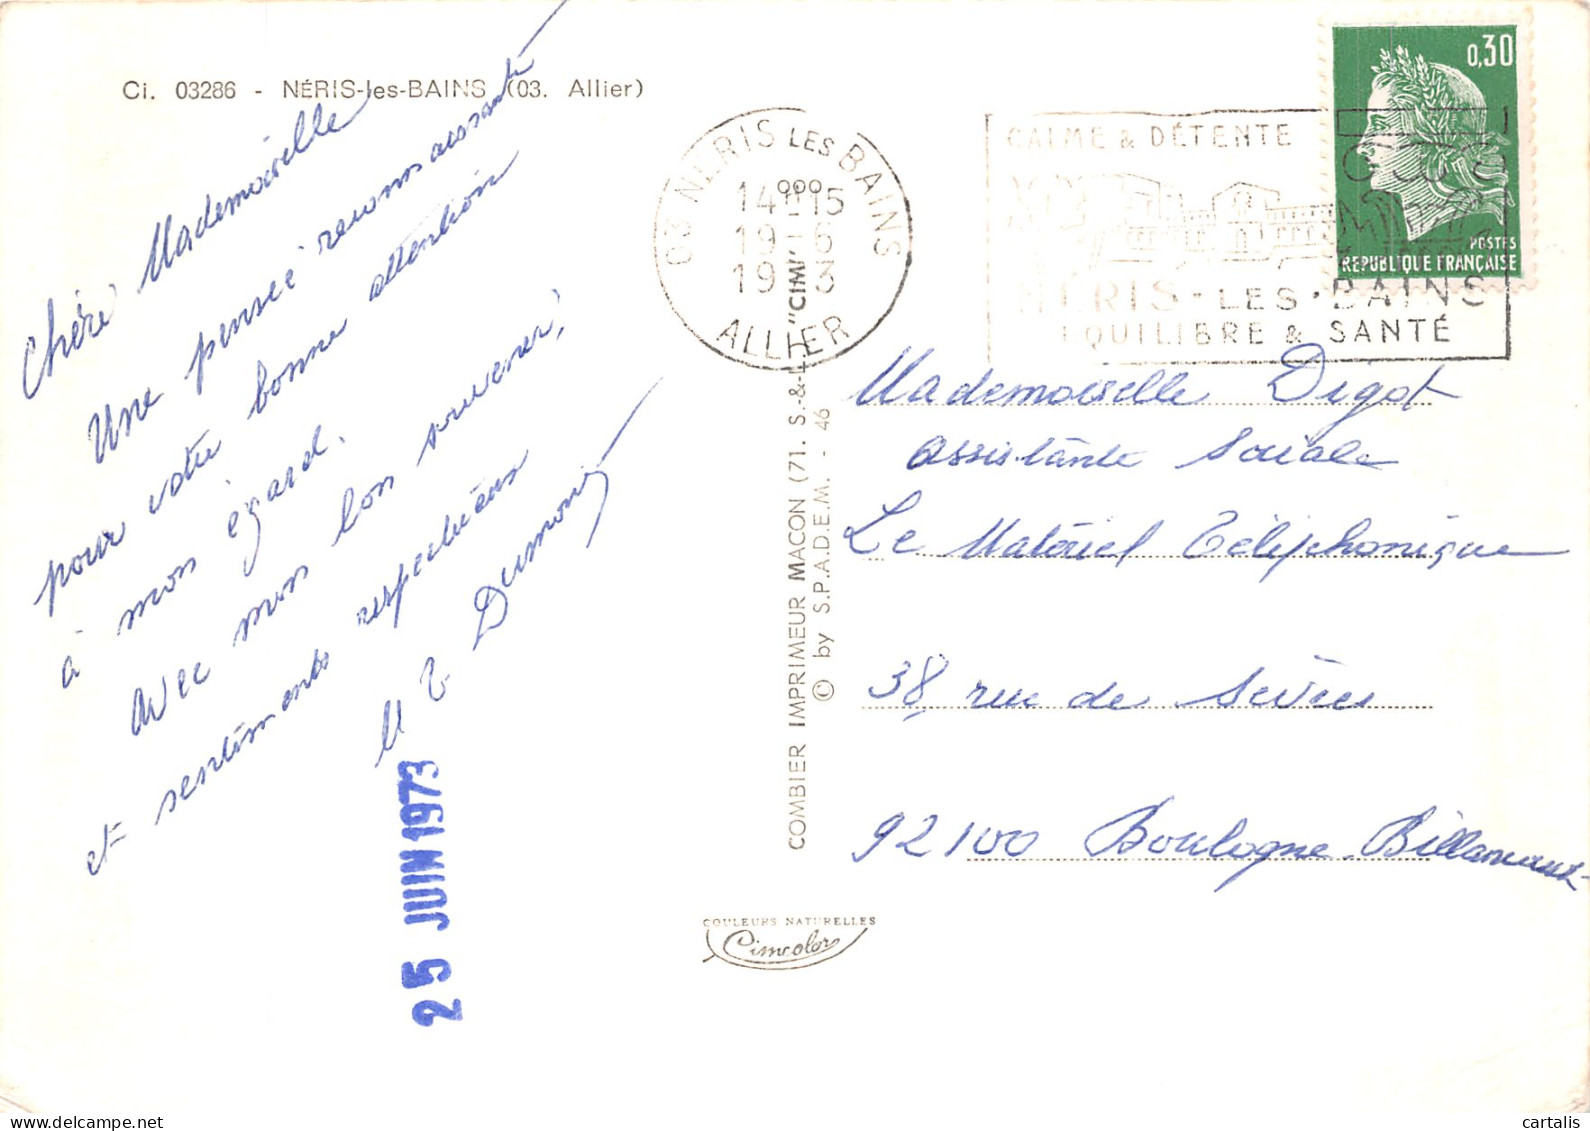 Ci. 03286 - NÉRIS-les-BAINS (03. Allier)
Chère Mademoiselle
Une pensée reconnaissante
pour votre bonne attention
à mon égard.
Avec mon bon souvenir,
et sentiments respectueux
Dumoni
25 JUIN 1973
COMBIER IMPRIMEUR MACON (71. S.-&-L.) "CIM"
© by S.P.A.D.E.M. - 46
COULEURS NATURELLES
Cimcolor
03 NERIS LES BAINS
14H15
19-6
1973
ALLIER
CALME & DÉTENTE
NERIS-LES-BAINS
EQUILIBRE & SANTÉ
0,30
POSTES
REPUBLIQUE FRANÇAISE
Mademoiselle Digot
Assistante Sociale
Le Matériel Téléphonique
38, rue de Sèvres
92100 Boulogne-Billancourt
delcampe.net
cartalis